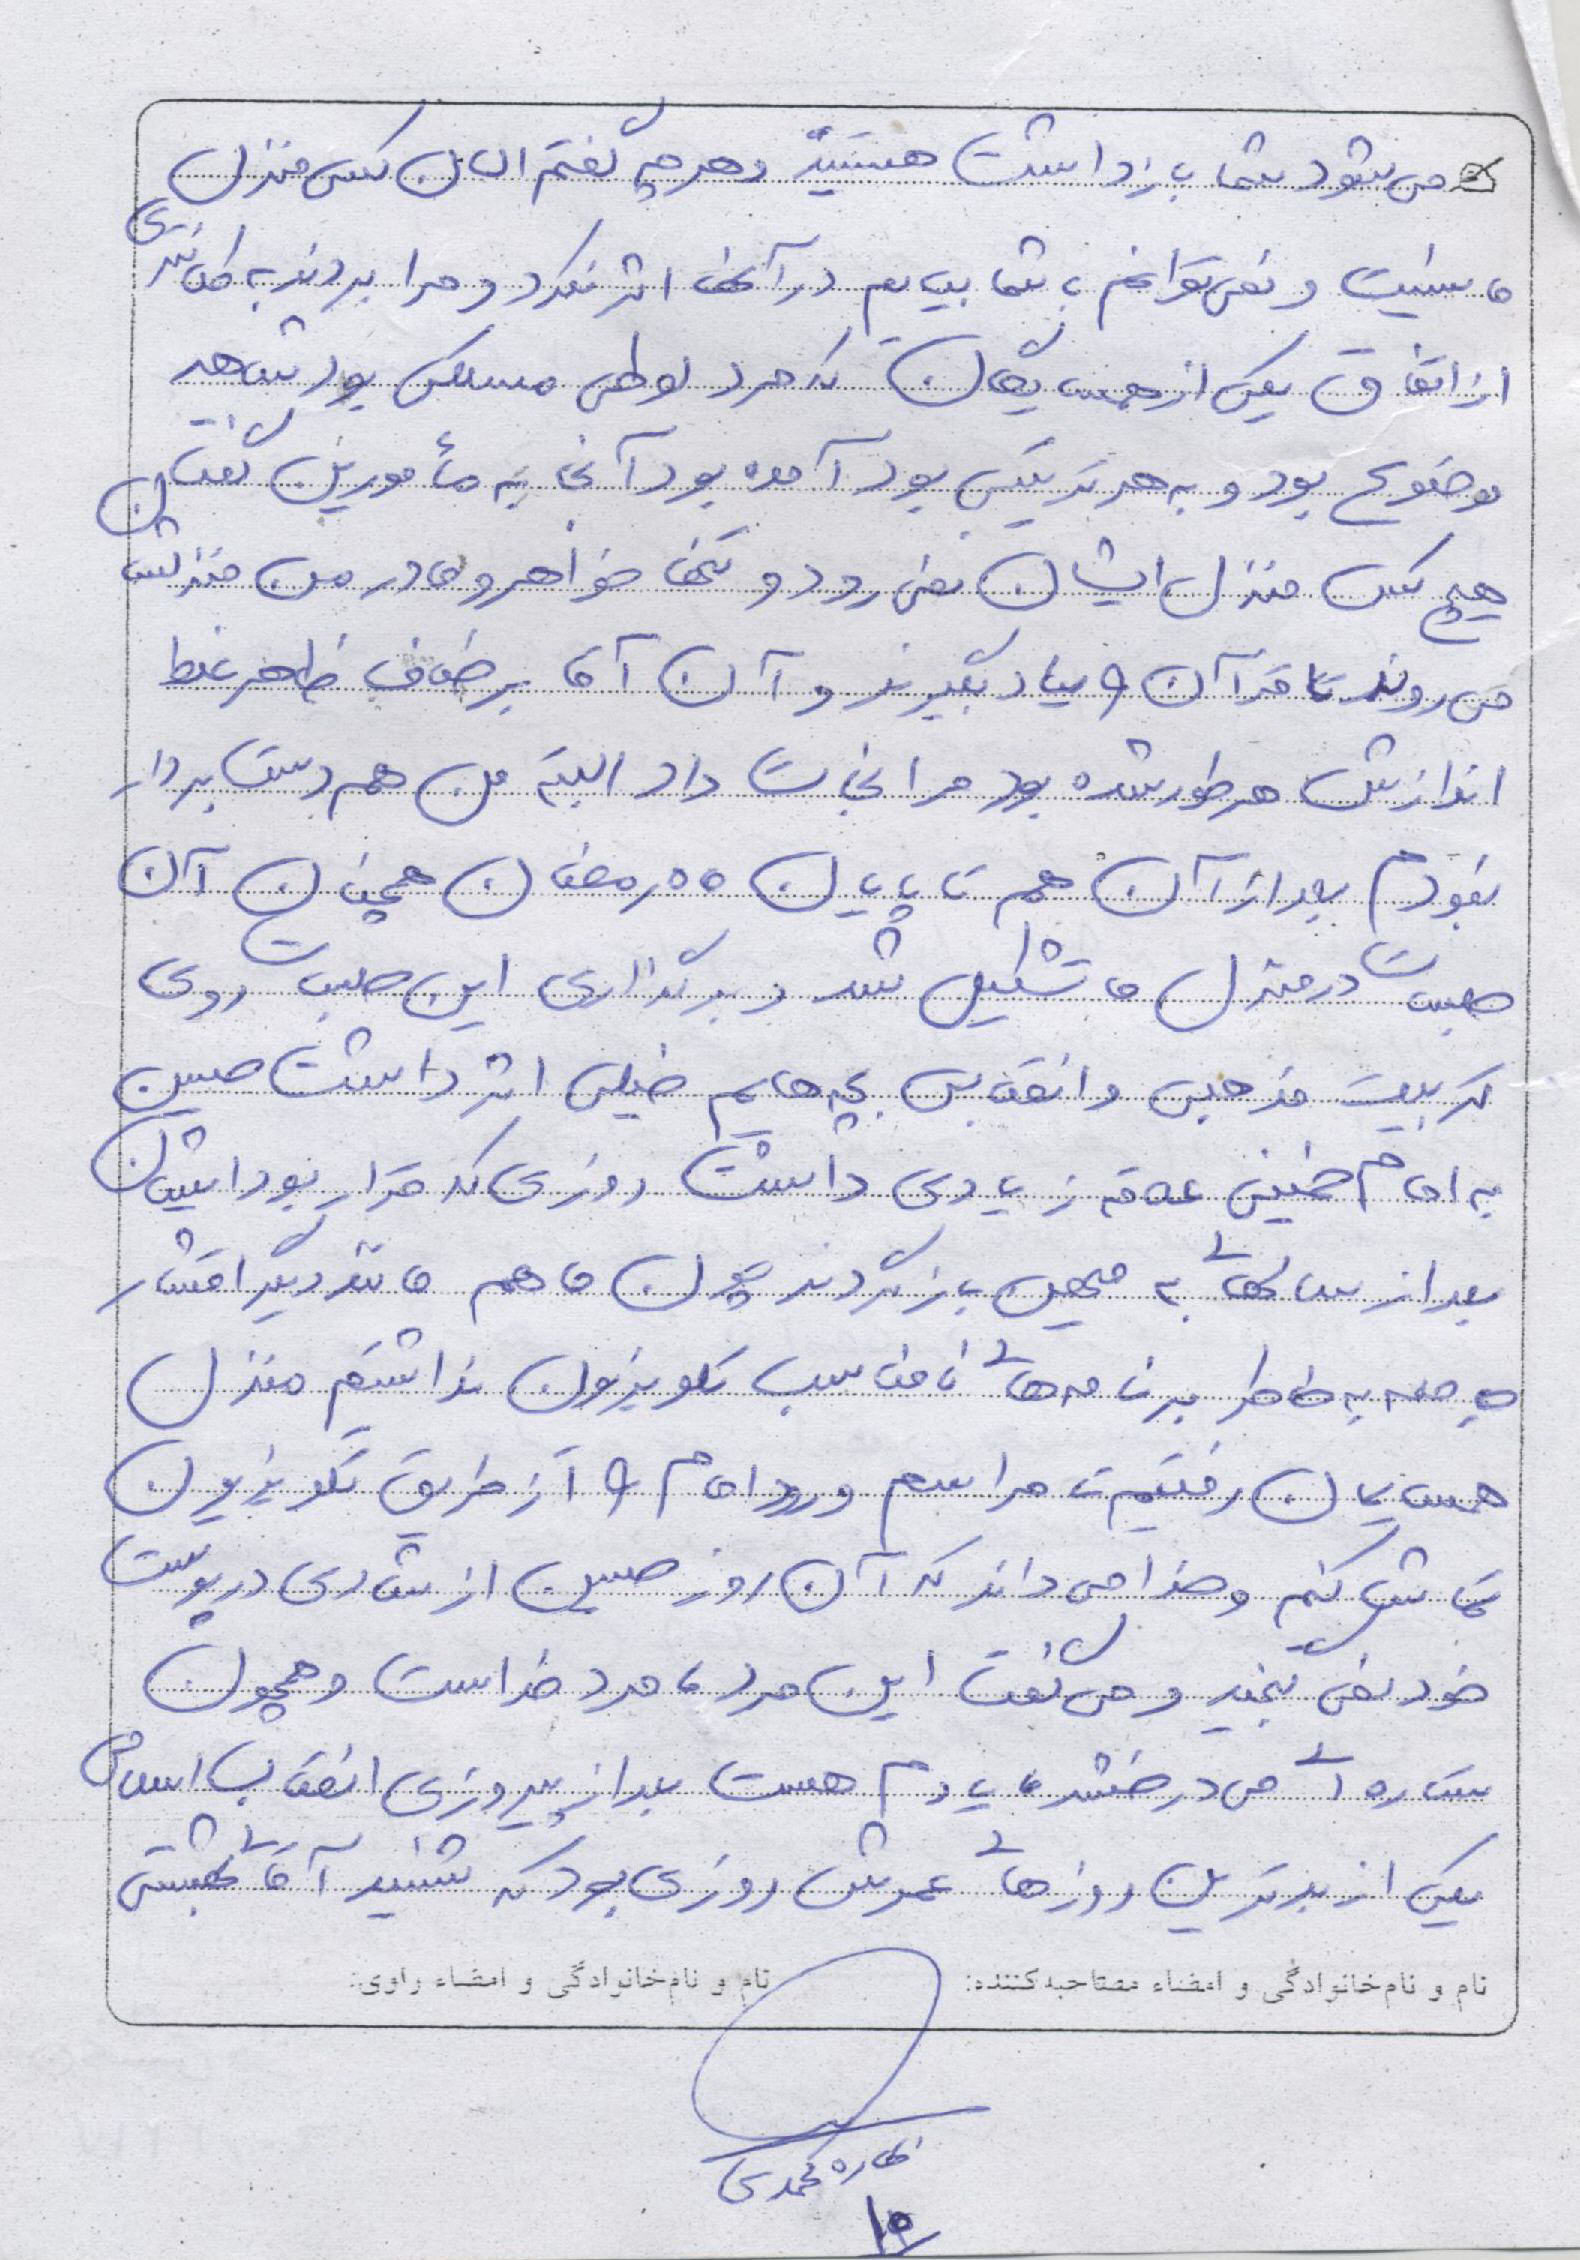 می شود شما بازداشت هستید و هر چه گفتم الان کسی منزل
ما نیست و نمی توانم با شما بیایم در آنها اثر نکرد و مرا بردند به کلانتری
از اتفاق یکی از همسایگان که مرد لوطی مسلکی بود شاهد
موضوع بود و به هر ترتیبی بود آمده بود آنجا به مأمورین گفت
هیچ کس منزل ایشان نمی رود و تنها خواهر و مادر من منزلشان
می روند تا قرآن یاد بگیرند و آن آقا بر خلاف ظاهر غلط
اندازش هر طور شده بود مرا نجات داد البته من هم دست بردار
نبودم بعد از آن هم تا پایان ماه رمضان همچنان آن
جلسات در منزل ما تشکیل شد و برگذاری این جلسات روی
تربیت مذهبی و انقلابی بچه هایم خیلی اثر داشت حسین
به امام خمینی علاقه زیادی داشت روزی که قرار بود ایشان
بعد از سالها به میهن بازگردند چون ما هم مانند دیگر اقشار
جامعه به خاطر برنامه های نامناسب تلویزیون نداشتیم منزل
همسایمان رفتیم تا مراسم ورود امام را از طریق تلویزیون
تماشا کنیم و خدا می داند که آن روز حسین از شادی در پوست
خود نمی گنجید و می گفت این مرد، مرد خداست و همچون
ستاره ای می درخشد، یادم هست بعد از پیروزی انقلاب اسلامی
یکی از بدترین روزهای عمرش روزی بود که شنید آقای بهشتی
نام و نام خانوادگی و امضاء مصاحبه کننده: نام و نام خانوادگی و امضاء راوی:
محمدی